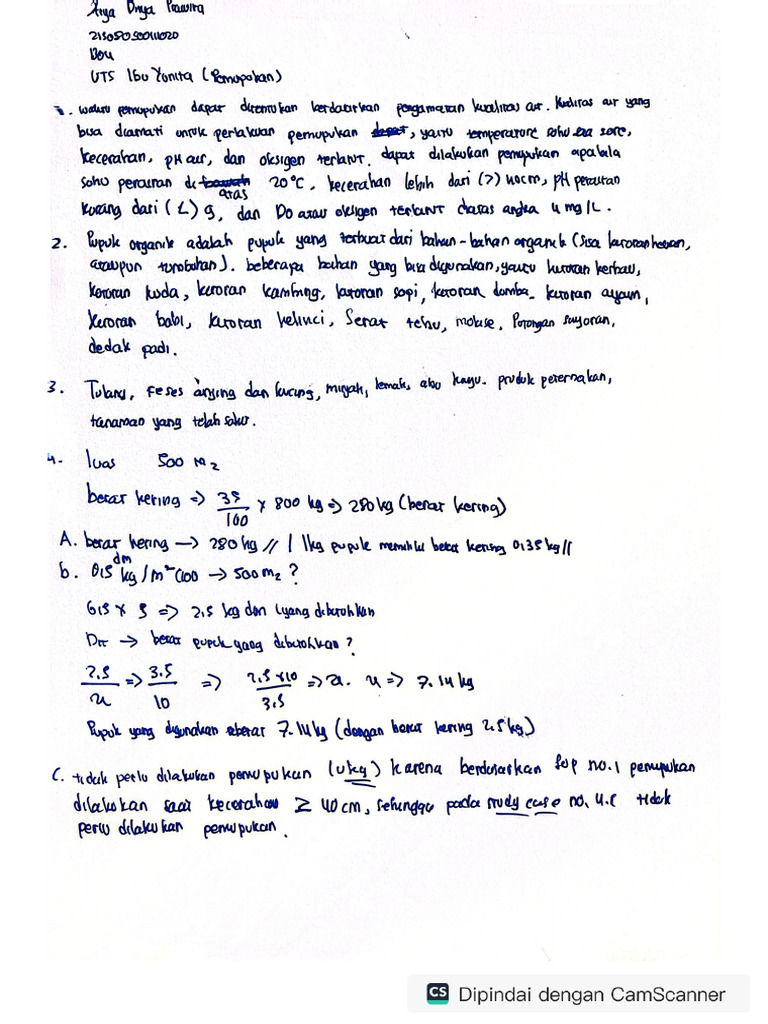 Arya Driya Prawira
UTS Ibu Yunita (Pemupukan)
1. waktu pemupukan dapat ditentukan berdasarkan pengamatan kualitas air. Kualitas air yang
bisa diamati untuk perlakuan pemupukan, yaitu temperature suhu sore,
kecerahan, pH air, dan oksigen terlarut. dapat dilakukan pemupukan apabila
suhu perairan di atas 20°C, kecerahan lebih dari (>) 40cm, pH perairan
kurang dari (<) 9, dan DO atau oksigen terlarut diatas angka 4 mg/L.
2. Pupuk organik adalah pupuk yang terbuat dari bahan-bahan organik (sisa kotoran hewan,
ataupun tumbuhan). beberapa bahan yang bisa digunakan, yaitu kotoran kerbau,
kotoran kuda, kotoran kambing, kotoran sapi, kotoran domba, kotoran ayam,
kotoran babi, kotoran kelinci, Serat tebu, molase, Potongan sayuran,
dedak padi.
3. Tulang, feses anjing dan kucing, minyak, lemak, abu kayu. produk peternakan,
tanaman yang telah
4. luas 500 M2
berat kering => 35/100 x 800 kg => 280 kg (berat kering)
A. berat kering → 280 kg // 1 kg pupuk memiliki berat kering 0,35 kg //
b. 0,5 kg dm/m²/100 → 500 m2 ?
0,5 x 5 => 2.5 kg dm yang dibutuhkan
Dit → berat pupuk yang dibutuhkan?
2.5/x => 3.5/10 => 2.5 x 10/3.5 => x. x => 7.14 kg
Pupuk yang digunakan seberat 7.14 kg (dengan berat kering 2,5 kg)
C. tidak perlu dilakukan pemupukan (0 kg) karena berdasarkan sop no.1 pemupukan
dilakukan saat kecerahan ≥ 40 cm, sehingga pada study case no. 4.C tidak
perlu dilakukan pemupukan.
CS Dipindai dengan CamScanner